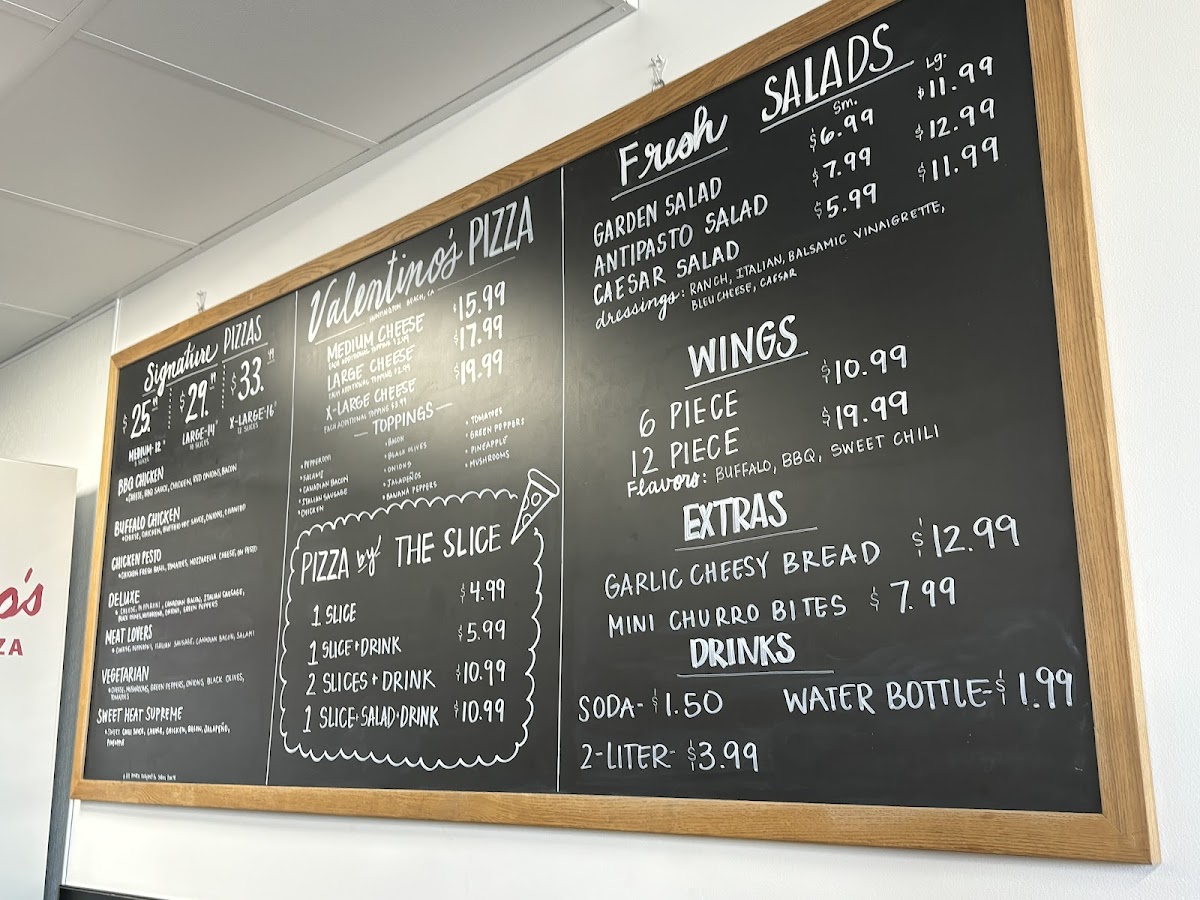 Signature PIZZAS
$25.99 $29.99 $33.99
MEDIUM-12" LARGE-14" X-LARGE-16"
10 SLICES 12 SLICES
BBQ CHICKEN
• CHEESE, BBQ SAUCE, CHICKEN, RED ONIONS, BACON
BUFFALO CHICKEN
• CHEESE, CHICKEN, BUFFALO HOT SAUCE, ONIONS, CILANTRO
CHICKEN PESTO
• CHICKEN FRESH BASIL, TOMATOES, MOZZARELLA CHEESE, ON PESTO
DELUXE
• CHEESE, PEPPERONI, CANADIAN BACON, ITALIAN SAUSAGE,
BLACK OLIVES, MUSHROOMS, ONIONS, GREEN PEPPERS
MEAT LOVERS
• CHEESE, PEPPERONI, ITALIAN SAUSAGE, CANADIAN BACON, SALAMI
VEGETARIAN
• CHEESE, MUSHROOMS, GREEN PEPPERS, ONIONS, BLACK OLIVES,
TOMATOES
SWEET HEAT SUPREME
• SWEET CHILI SAUCE, CHEESE, CHICKEN, BACON, JALAPEÑO,
PINEAPPLE
Valentino's PIZZA
HUNTINGTON BEACH, CA
MEDIUM CHEESE $15.99
EACH ADDITIONAL TOPPING $2.49
LARGE CHEESE $17.99
EACH ADDITIONAL TOPPING $2.99
X-LARGE CHEESE $19.99
EACH ADDITIONAL TOPPING $3.99
TOPPINGS
• PEPPERONI
• SALAMI
• CANADIAN BACON
• ITALIAN SAUSAGE
• CHICKEN
• BACON
• BLACK OLIVES
• ONIONS
• JALAPEÑOS
• BANANA PEPPERS
• TOMATOES
• GREEN PEPPERS
• PINEAPPLE
• MUSHROOMS
PIZZA by THE SLICE
1 SLICE $4.99
1 SLICE + DRINK $5.99
2 SLICES + DRINK $10.99
1 SLICE + SALAD + DRINK $10.99
Fresh SALADS
Sm. Lg.
GARDEN SALAD $6.99 $11.99
ANTIPASTO SALAD $7.99 $12.99
CAESAR SALAD $5.99 $11.99
dressings: RANCH, ITALIAN, BALSAMIC VINAIGRETTE,
BLEU CHEESE, CAESAR
WINGS
6 PIECE $10.99
12 PIECE $19.99
Flavors: BUFFALO, BBQ, SWEET CHILI
EXTRAS
GARLIC CHEESY BREAD $12.99
MINI CHURRO BITES $7.99
DRINKS
SODA- $1.50 WATER BOTTLE- $1.99
2-LITER- $3.99
o's
ZA